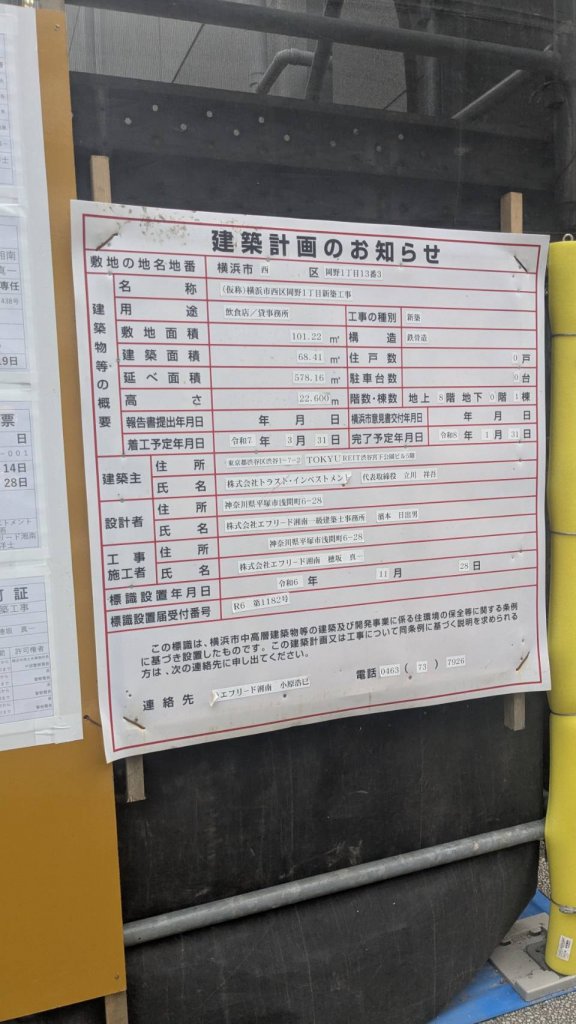 建築計画のお知らせ
敷地の地名地番 横浜市 西 区 岡野1丁目13番3
建築物等の概要
名称 (仮称)横浜市西区岡野1丁目新築工事
用途 飲食店／貸事務所 工事の種別 新築
敷地面積 101.22 ㎡ 構造 鉄骨造
建築面積 68.41 ㎡ 住戸数 0 戸
延べ面積 578.16 ㎡ 駐車台数 0 台
高さ 22.600 m 階数・棟数 地上 8 階 地下 0 階 1 棟
報告書提出年月日 年 月 日 横浜市意見書交付年月日 年 月 日
着工予定年月日 令和7 年 3 月 31 日 完了予定年月日 令和8 年 1 月 31 日
建築主 住所 東京都渋谷区渋谷1-7-2 TOKYU REIT渋谷宮下公園ビル5階
氏名 株式会社トラスト・インベストメント 代表取締役 立川 祥吾
設計者 住所 神奈川県平塚市浅間町6-28
氏名 株式会社エフリード湘南一級建築士事務所 濱本 日出男
工事施工者 住所 神奈川県平塚市浅間町6-28
氏名 株式会社エフリード湘南 穂坂 真一
標識設置年月日 令和6 年 11 月 28 日
標識設置届受付番号 R6 第1182号
この標識は、横浜市中高層建築物等の建築及び開発事業に係る住環境の保全等に関する条例
に基づき設置したものです。この建築計画又は工事について同条例に基づく説明を求められる
方は、次の連絡先に申し出てください。
連絡先 エフリード湘南 小原浩已 電話 0463 ( 73 ) 7926